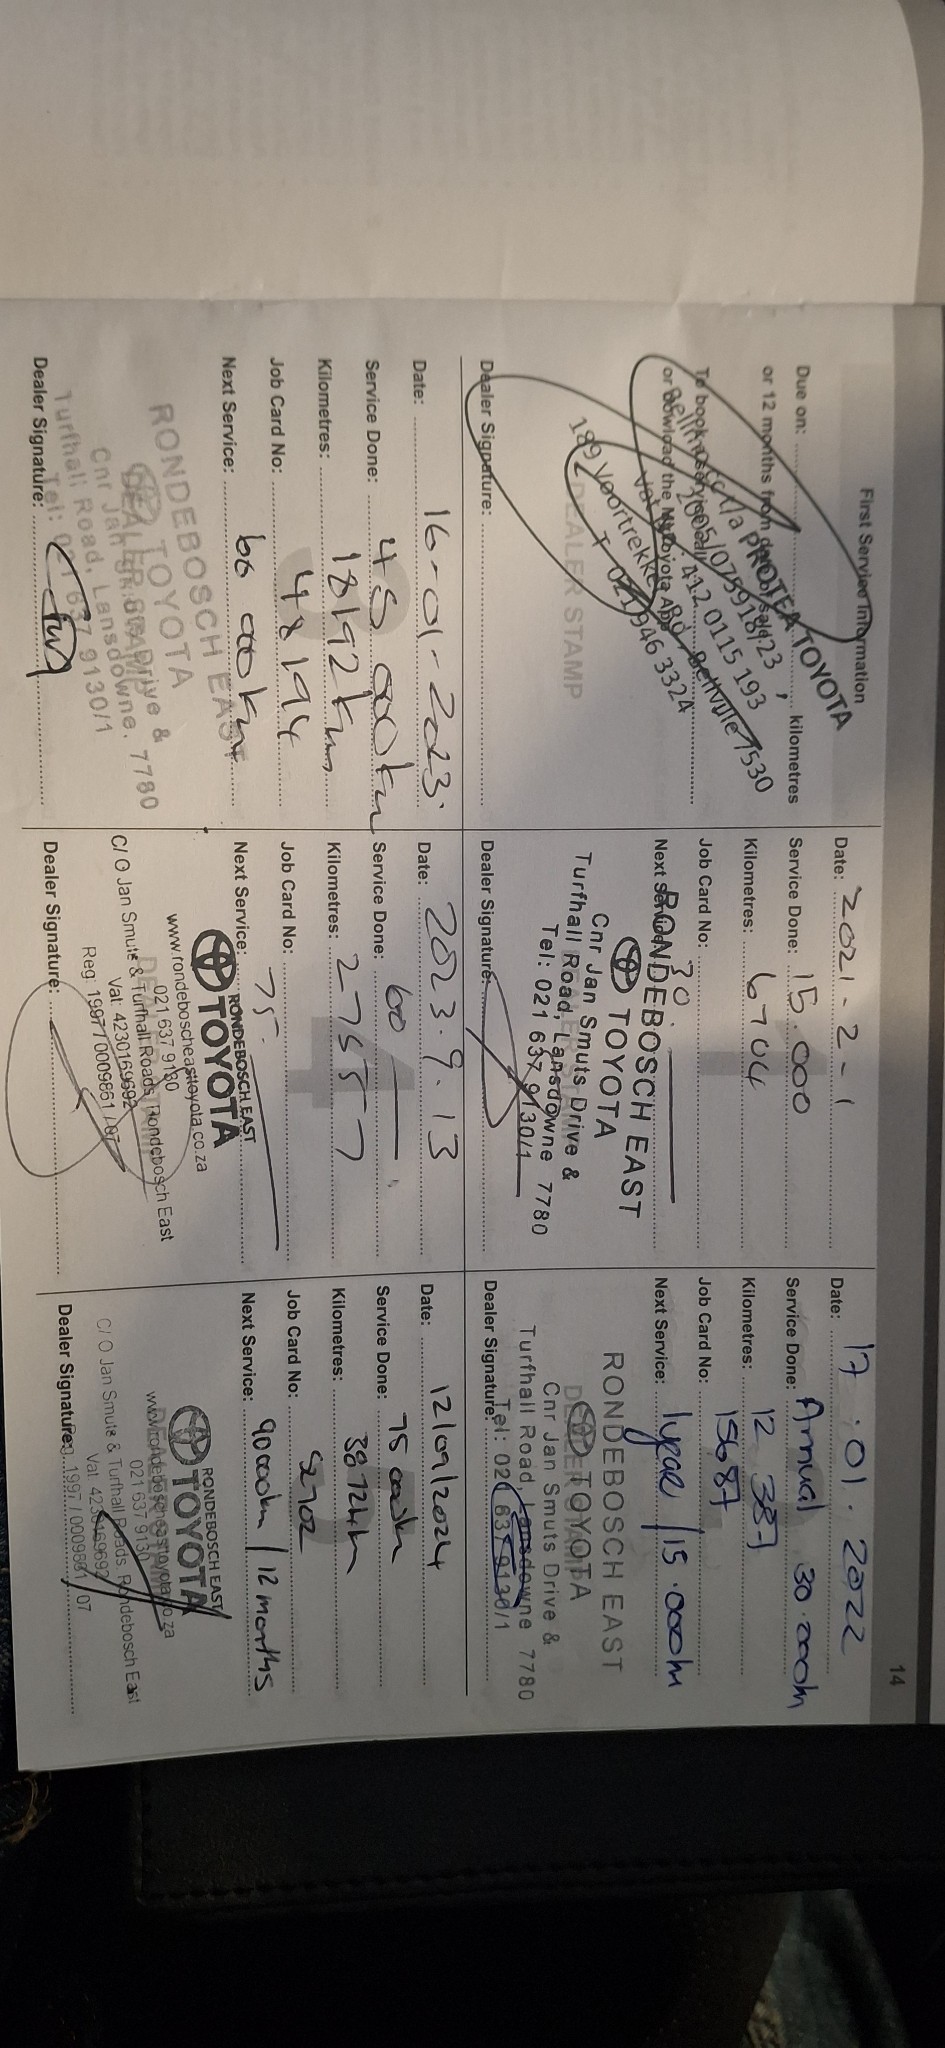 14
First Service Information
Due on: , kilometres
or 12 months from date of sale.
PROTEA TOYOTA
2005/075918/23
Vat: 412 0115 193
189 Voortrekker Rd, Bellville 7530
T 021 946 3324
DEALER STAMP
Dealer Signature:
Date: 2021-2-1
Service Done: 15.000
Kilometres: 6704
Job Card No:
Next Service: 30.
RONDEBOSCH EAST
TOYOTA
Cnr Jan Smuts Drive &
Turfhall Road, Lansdowne 7780
Tel: 021 637 9130/1
Dealer Signature:
Date: 17.01.2022
Service Done: Annual 30.000km
Kilometres: 12 387
Job Card No: 15687
Next Service: 1year/15.000km
RONDEBOSCH EAST
TOYOTA
Cnr Jan Smuts Drive &
Turfhall Road, Lansdowne 7780
Tel: 021 637 9130/1
Dealer Signature:
Date: 16-01-2023.
Service Done: 45 000km
Kilometres: 18192km
Job Card No: 48194
Next Service: 60 000km
RONDEBOSCH EAST
TOYOTA
DEALER STAMP
Cnr Jan Smuts Drive &
Turfhall Road, Lansdowne, 7780
Tel: 021 637 9130/1
Dealer Signature:
Date: 2023.9.13
Service Done: 60
Kilometres: 27557
Job Card No:
Next Service: 75
RONDEBOSCH EAST
TOYOTA
www.rondeboscheasttoyota.co.za
021 637 9130
C/O Jan Smuts & Turfhall Roads Rondebosch East
Vat: 4230169692
Reg: 1997/0009861/07
Dealer Signature:
Date: 12/09/2024
Service Done: 75 000km
Kilometres: 38724km
Job Card No: 5702
Next Service: 90 000km/12 months
RONDEBOSCH EAST
TOYOTA
021 637 9130
C/O Jan Smuts & Turfhall Roads Rondebosch East
Vat: 4230169692
Reg: 1997/0009861/07
Dealer Signature: